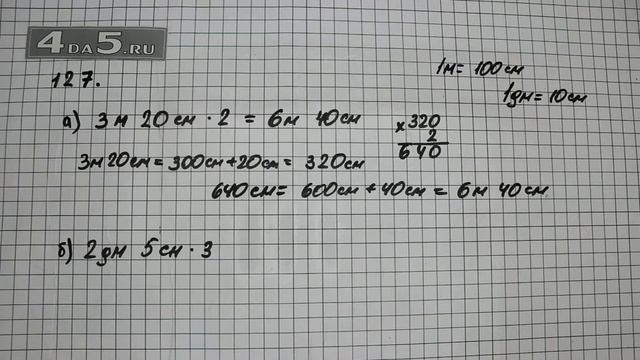 4DA5.RU
127.
1м = 100см
1дм = 10см
а) 3м 20см · 2 = 6м 40см
×320
2
640
3м 20см = 300см + 20см = 320см
640см = 600см + 40см = 6м 40см
б) 2дм 5см · 3